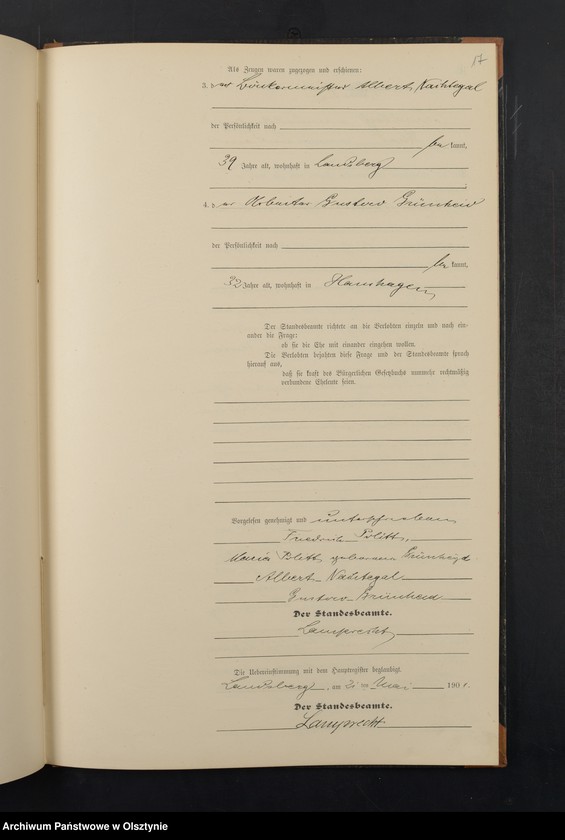 17
Als Zeugen waren zugezogen und erschienen:
3. der Bäckermeister Albert Nachtegal
der Persönlichkeit nach
be kannt,
39 Jahre alt, wohnhaft in Landsberg
4. der Arbeiter Gustav Grünheid
der Persönlichkeit nach
be kannt,
32 Jahre alt, wohnhaft in Hanshagen
Der Standesbeamte richtete an die Verlobten einzeln und nach ein-
ander die Frage:
ob sie die Ehe mit einander eingehen wollen.
Die Verlobten bejahten diese Frage und der Standesbeamte sprach
hierauf aus,
daß sie kraft des Bürgerlichen Gesetzbuchs nunmehr rechtmäßig
verbundene Eheleute seien.
Vorgelesen, genehmigt und unterschrieben
Friedrich
geborene Grünheid
Albert Nachtegal
Gustav Grünheid
Der Standesbeamte.
Lamprecht
Die Uebereinstimmung mit dem Hauptregister beglaubigt.
Landsberg, am Mai 190
Der Standesbeamte.
Lamprecht
Archiwum Państwowe w Olsztynie